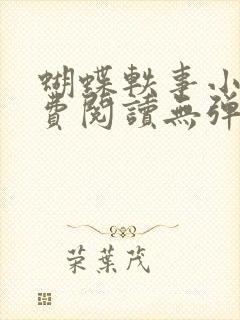 蝴蝶軼事小
費閱讀無彈
荣葉茂